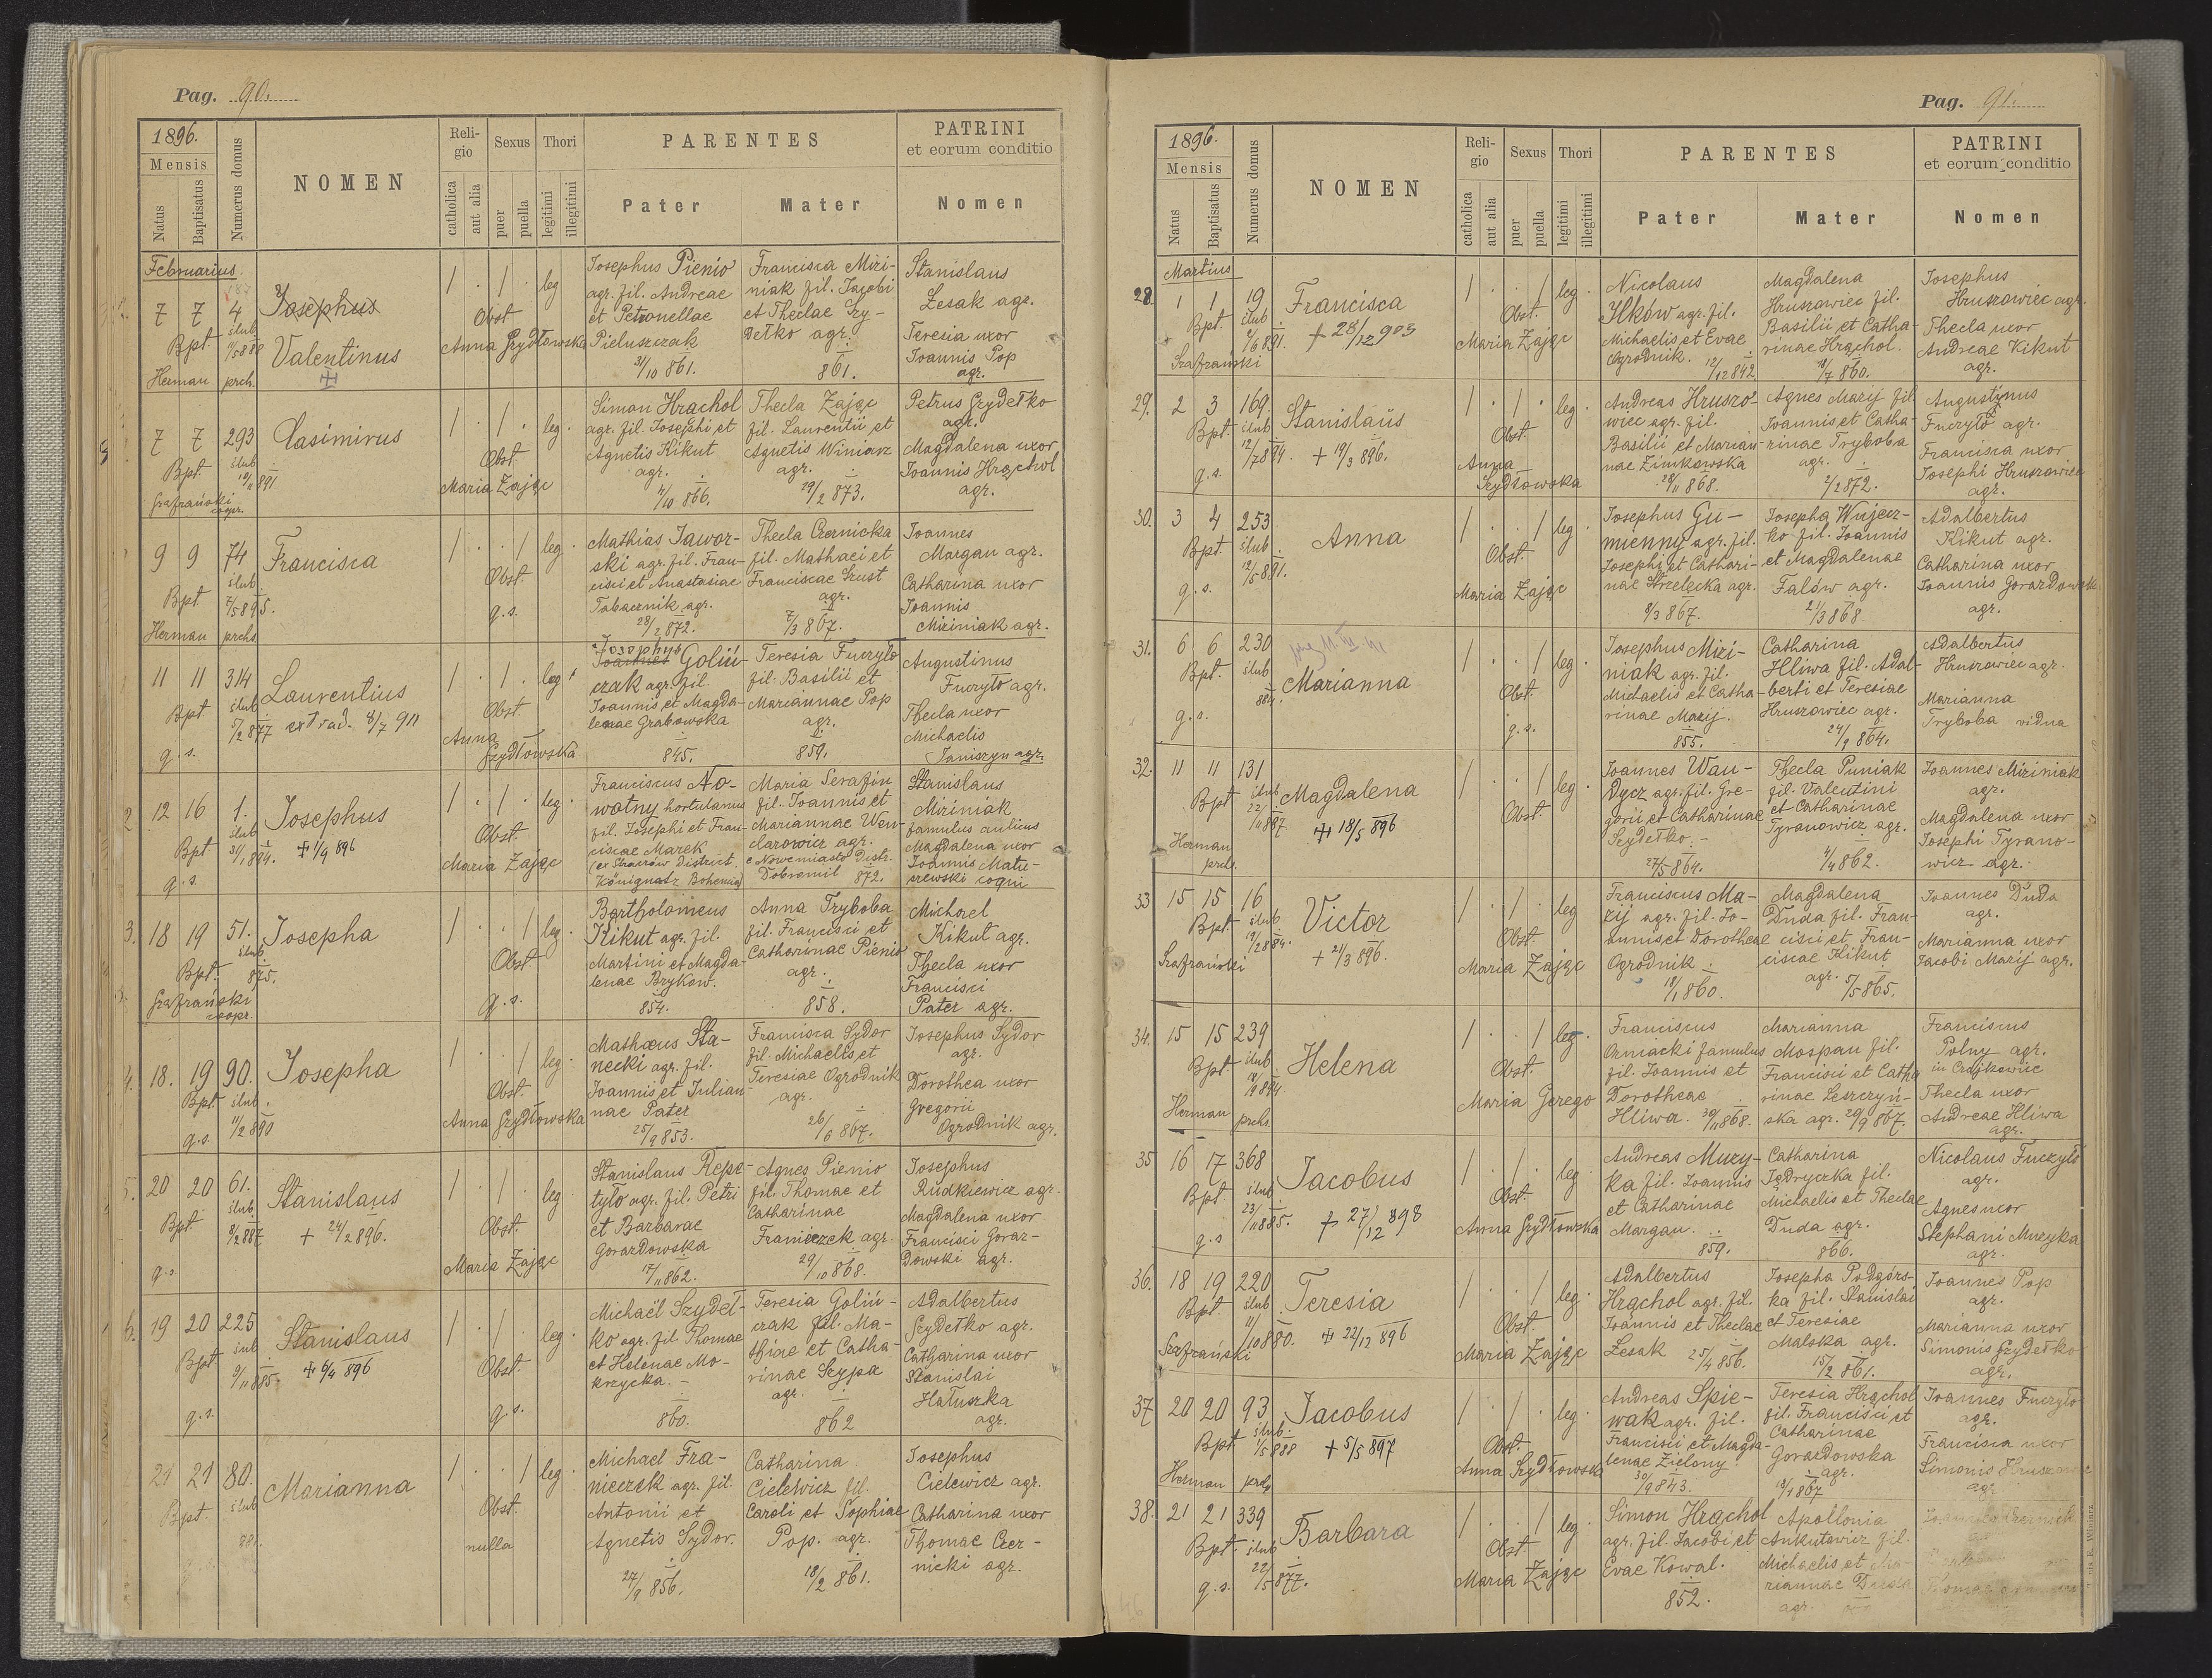 Pag. 90.
1896.
Mensis
Natus
Baptisatus
Numerus domus
NOMEN
Religio
catholica
aut alia
Sexus
puer
puella
Thori
legitimi
illegitimi
PARENTES
Pater
Mater
PATRINI
et eorum conditio
Nomen
Februarius.
7 7 4 Josephus Valentinus
Bpt. ślub
Herman prch.
1 . 1 . leg
Obst.
Anna Szydłowska
Josephus Pienio
agr. fil. Andreae
et Petronellae
Pieluszczak
31/10 861.
Francisca Mizi-
niak fil. Jacobi
et Theclae Szy-
dełko agr.
861.
Stanislaus
Lesak agr.
Teresia uxor
Joannis Pop
agr.
7 7 293 Casimirus
Bpt. ślub
19/11 891
Szafrański
coopr.
1 . 1 . leg.
Obst.
Maria Zając
Simon Hrachol
agr. fil. Josephi et
Agnetis Kikut
agr.
4/10 866.
Thecla Zając
fil. Laurentii et
Agnetis Winiarz
agr.
29/2 873.
Petrus Szydełko
agr.
Magdalena uxor
Joannis Hrachol
agr.
9 9 74 Francisca
Bpt ślub
7/5 895.
Herman prchs
1 . . 1 leg.
Obst.
g.s.
Mathias Jawor-
ski agr. fil. Fran-
cisci et Anastasiae
Tabacznik agr.
28/2 872.
Thecla Czernicka
fil. Mathaei et
Franciscae Szust
agr.
7/3 867.
Joannes
Margan agr.
Catharina uxor
Joannis
Miziniak agr.
11 11 314 Laurentius
Bpt ślub
5/2 877 extrad. 8/7 911
g.s.
1 . 1 . leg.
Obst.
Anna
Szydłowska
Josephus
Joannes Goliń-
czak agr. fil.
Joannis et Magda-
lenae Grabowska
845.
Teresia Fuczyło
fil. Basilii et
Mariannae Pop
agr.
859.
Augustinus
Fuczyło agr.
Thecla uxor
Michaelis
Janiszyn agr.
12 16 1. Josephus
Bpt ślub
31/1 894. + 1/9 896
g.s.
1 . 1 . leg.
Obst.
Maria Zając
Franciscus No-
wotny hortulanus
fil. Josephi et Fran-
ciscae Marek
District.
Königratz Bohemia)
Maria Serafin
fil. Joannis et
Mariannae Wen-
clarowicz agr.
e Nowemiasto Distr.
Dobromil 872.
Stanislaus
Miziniak
famulus aulicus
Magdalena uxor
Joannis Matu-
szewski coqui
3. 18 19 51. Josepha
Bpt. ślub
875.
Szafrański
coopr.
1 . . 1 leg.
Obst.
g.s.
Bartholomeus
Kikut agr. fil.
Martini et Magda-
lenae Bryków.
854.
Anna Tryboba
fil. Francisci et
Catharinae Pienio
agr.
858.
Michael
Kikut agr.
Thecla uxor
Francisci
Pater agr.
4. 18. 19 90. Josepha
Bpt. ślub.
11/2 890
g.s.
1 . . 1 leg.
Obst.
Anna Szydłowska
Mathaeus Sta-
necki agr. fil.
Joannis et Julian-
nae Pater
25/9 853.
Francisca Sydor
fil. Michaelis et
Teresiae Ogrodnik
agr.
26/6 867.
Josephus Sydor
agr.
Dorothea uxor
Gregorii
Ogrodnik agr.
5. 20 20 61. Stanislaus
Bpt ślub
8/2 887 + 24/2 896.
g.s.
1 . 1 . leg
Obst.
Maria Zając
Stanislaus Repe-
tyło agr. fil. Petri
et Barbarae
Gorazdowska
17/11 862.
Agnes Pienio
fil. Thomae et
Catharinae
Franieczek agr.
29/10 868.
Josephus
Rudkiewicz agr.
Magdalena uxor
Francisci Goraz-
dowski agr.
6. 19 20 225 Stanislaus
Bpt ślub
9/11 885. + 6/4 896
g.s.
1 . 1 . leg.
Obst.
g.s.
Michaël Szydeł-
ko agr. fil. Thomae
et Helenae Mo-
krzycka.
860.
Teresia Goliń-
czak fil. Ma-
thiae et Catha-
rinae Scypa
agr.
862
Adalbertus
Szydełko agr.
Catharina uxor
Stanislai
Hałuszka
agr.
21 21 80. Marianna
Bpt. ślub
1 . . 1 leg.
Obst.
nulla
Michael Fra-
nieczek agr. fil.
Antonii et
Agnetis Sydor.
27/9 856.
Catharina
Cielewicz fil.
Caroli et Sophiae
Pop. agr.
18/2 861.
Josephus
Cielewicz agr.
Catharina uxor
Thomae Czer-
nicki agr.
Pag. 91.
1896.
Mensis
Natus
Baptisatus
Numerus domus
NOMEN
Religio
catholica
aut alia
Sexus
puer
puella
Thori
legitimi
illegitimi
PARENTES
Pater
Mater
PATRINI
et eorum conditio
Nomen
Martius
28. 1 1 19 Francisca
Bpt. ślub
6/6 891. + 28/12 903
Szafrański
1 . . 1 leg.
Obst.
Maria Zając
Nicolaus
Ilków agr. fil.
Michaelis et Evae
Ogrodnik.
12/12 842.
Magdalena
Hruszowiec fil.
Basilii et Catha-
rinae Hrachol.
18/7 860.
Josephus
Hruszowiec agr.
Thecla uxor
Andreae Kikut
agr.
29. 2 3 169. Stanislaus
Bpt. ślub
12/7 894. + 19/3 896.
g.s.
1 . 1 . leg.
Obst.
Anna
Szydłowska
Andreas Hruszo-
wiec agr. fil.
Basilii et Marian-
nae Zimkowska
28/11 868.
Agnes Mazij fil.
Joannis et Catha-
rinae Tryboba
agr.
2/2 872.
Augustinus
Fuczyło agr.
Francisca uxor
Josephi Hruszowiec
agr.
30. 3 4 253 Anna
Bpt. ślub
12/5 891.
g.s.
1 . . 1 leg.
Obst.
Maria Zając
Josephus Gu-
mienny agr. fil.
Josephi et Cathari-
nae Strzelecka agr.
8/3 867.
Josepha Wujcz-
ko fil. Joannis
et Magdalenae
Falów agr.
21/3 868.
Adalbertus
Kikut agr.
Catharina uxor
Joannis Gorazdowski
agr.
31. 6 6 230 Marianna
Bpt. ślub
884.
g.s.
1 . . 1 leg.
Obst.
g.s.
Josephus Mizi-
niak agr. fil.
Michaelis et Catha-
rinae Mazij.
855.
Catharina
Hliwa fil. Adal-
berti et Teresiae
Hruszowiec agr.
24/9 864.
Adalbertus
Hruszowiec agr.
Marianna
Tryboba vidua
32. 11 11 131 Magdalena
Bpt ślub
22/11 887 + 18/5 896
Herman
prch.
1 . . 1 leg.
Obst.
Joannes Wan-
dycz agr. fil. Gre-
gorii et Catharinae
Szydełko.
27/5 864.
Thecla Puniak
fil. Valentini
et Catharinae
Tyranowicz agr.
4/4 862.
Joannes Miziniak
agr.
Magdalena uxor
Josephi Tyrano-
wicz agr.
33 15 15 16 Victor
Bpt ślub
19/2 884. + 21/3 896.
Szafrański
1 . 1 . leg
Obst.
Maria Zając
Franciscus Ma-
zij agr. fil. Jo-
annis et Dorotheae
Ogrodnik.
18/1 860.
Magdalena
Duda fil. Fran-
cisci et Fran-
ciscae Kikut
agr. 5/5 865.
Joannes Duda
agr.
Marianna uxor
Jacobi Mazij agr.
34. 15 15 239 Helena
Bpt ślub
Herman prchs.
1 . . 1 leg.
Obst.
Maria Gerego
Franciscus
Ozniacki famulus
fil. Joannis et
Dorotheae
Hliwa. 30/11 868.
Marianna
Mospan fil.
Francisci et Catha
rinae Leszczyń-
ska agr. 20/9 867.
Franciscus
Polny agr.
in Czajkowice
Thecla uxor
Andreae Hliwa
agr.
35 16 17 368 Jacobus
Bpt ślub
23/11 885. + 27/12 898
g.s
1 . 1 . leg.
Obst.
Anna Szydłowska
Andreas Muzy-
ka fil. Joannis
et Catharinae
Margan.
859.
Catharina
Jedryczka fil.
Michaelis et Theclae
Duda agr.
866.
Nicolaus Fuczyło
agr.
Agnes uxor
Stephani Muzyka
agr.
36. 18 19 220 Teresia
Bpt ślub
11/10 880. + 22/12 896
Szafrański
1 . . 1 leg.
Obst.
Maria Zając
Adalbertus
Hrachol agr. fil.
Joannis et Theclae
Lesak 25/4 856.
Josepha Podgórs-
ka fil. Stanislai
et Teresiae
Malska agr.
15/2 861.
Joannes Pop
agr.
Marianna uxor
Simonis Szydełko
agr.
37 20 20 93 Jacobus
Bpt ślub.
1/5 888 + 5/5 897
Herman prch
1 . 1 . leg.
Obst.
Anna Szydłowska
Andreas Spie-
wak agr. fil.
Francisci et Magda-
lenae Zielony.
30/9 843.
Teresia Hrachol
fil. Francisci et
Catharinae
Gorazdowska
agr.
18/1 867
Joannes Fuczyło
agr.
Francisca uxor
Simonis Hruszowiec
agr.
38. 21 21 339 Barbara
Bpt. ślub
22/5 877.
g.s.
1 . . 1 leg.
Obst.
Maria Zając
Simon Hrachol
agr. fil. Jacobi et
Evae Kowal.
852.
Apollonia
Ankutowicz fil
Michaelis et Ma-
riannae
agr.